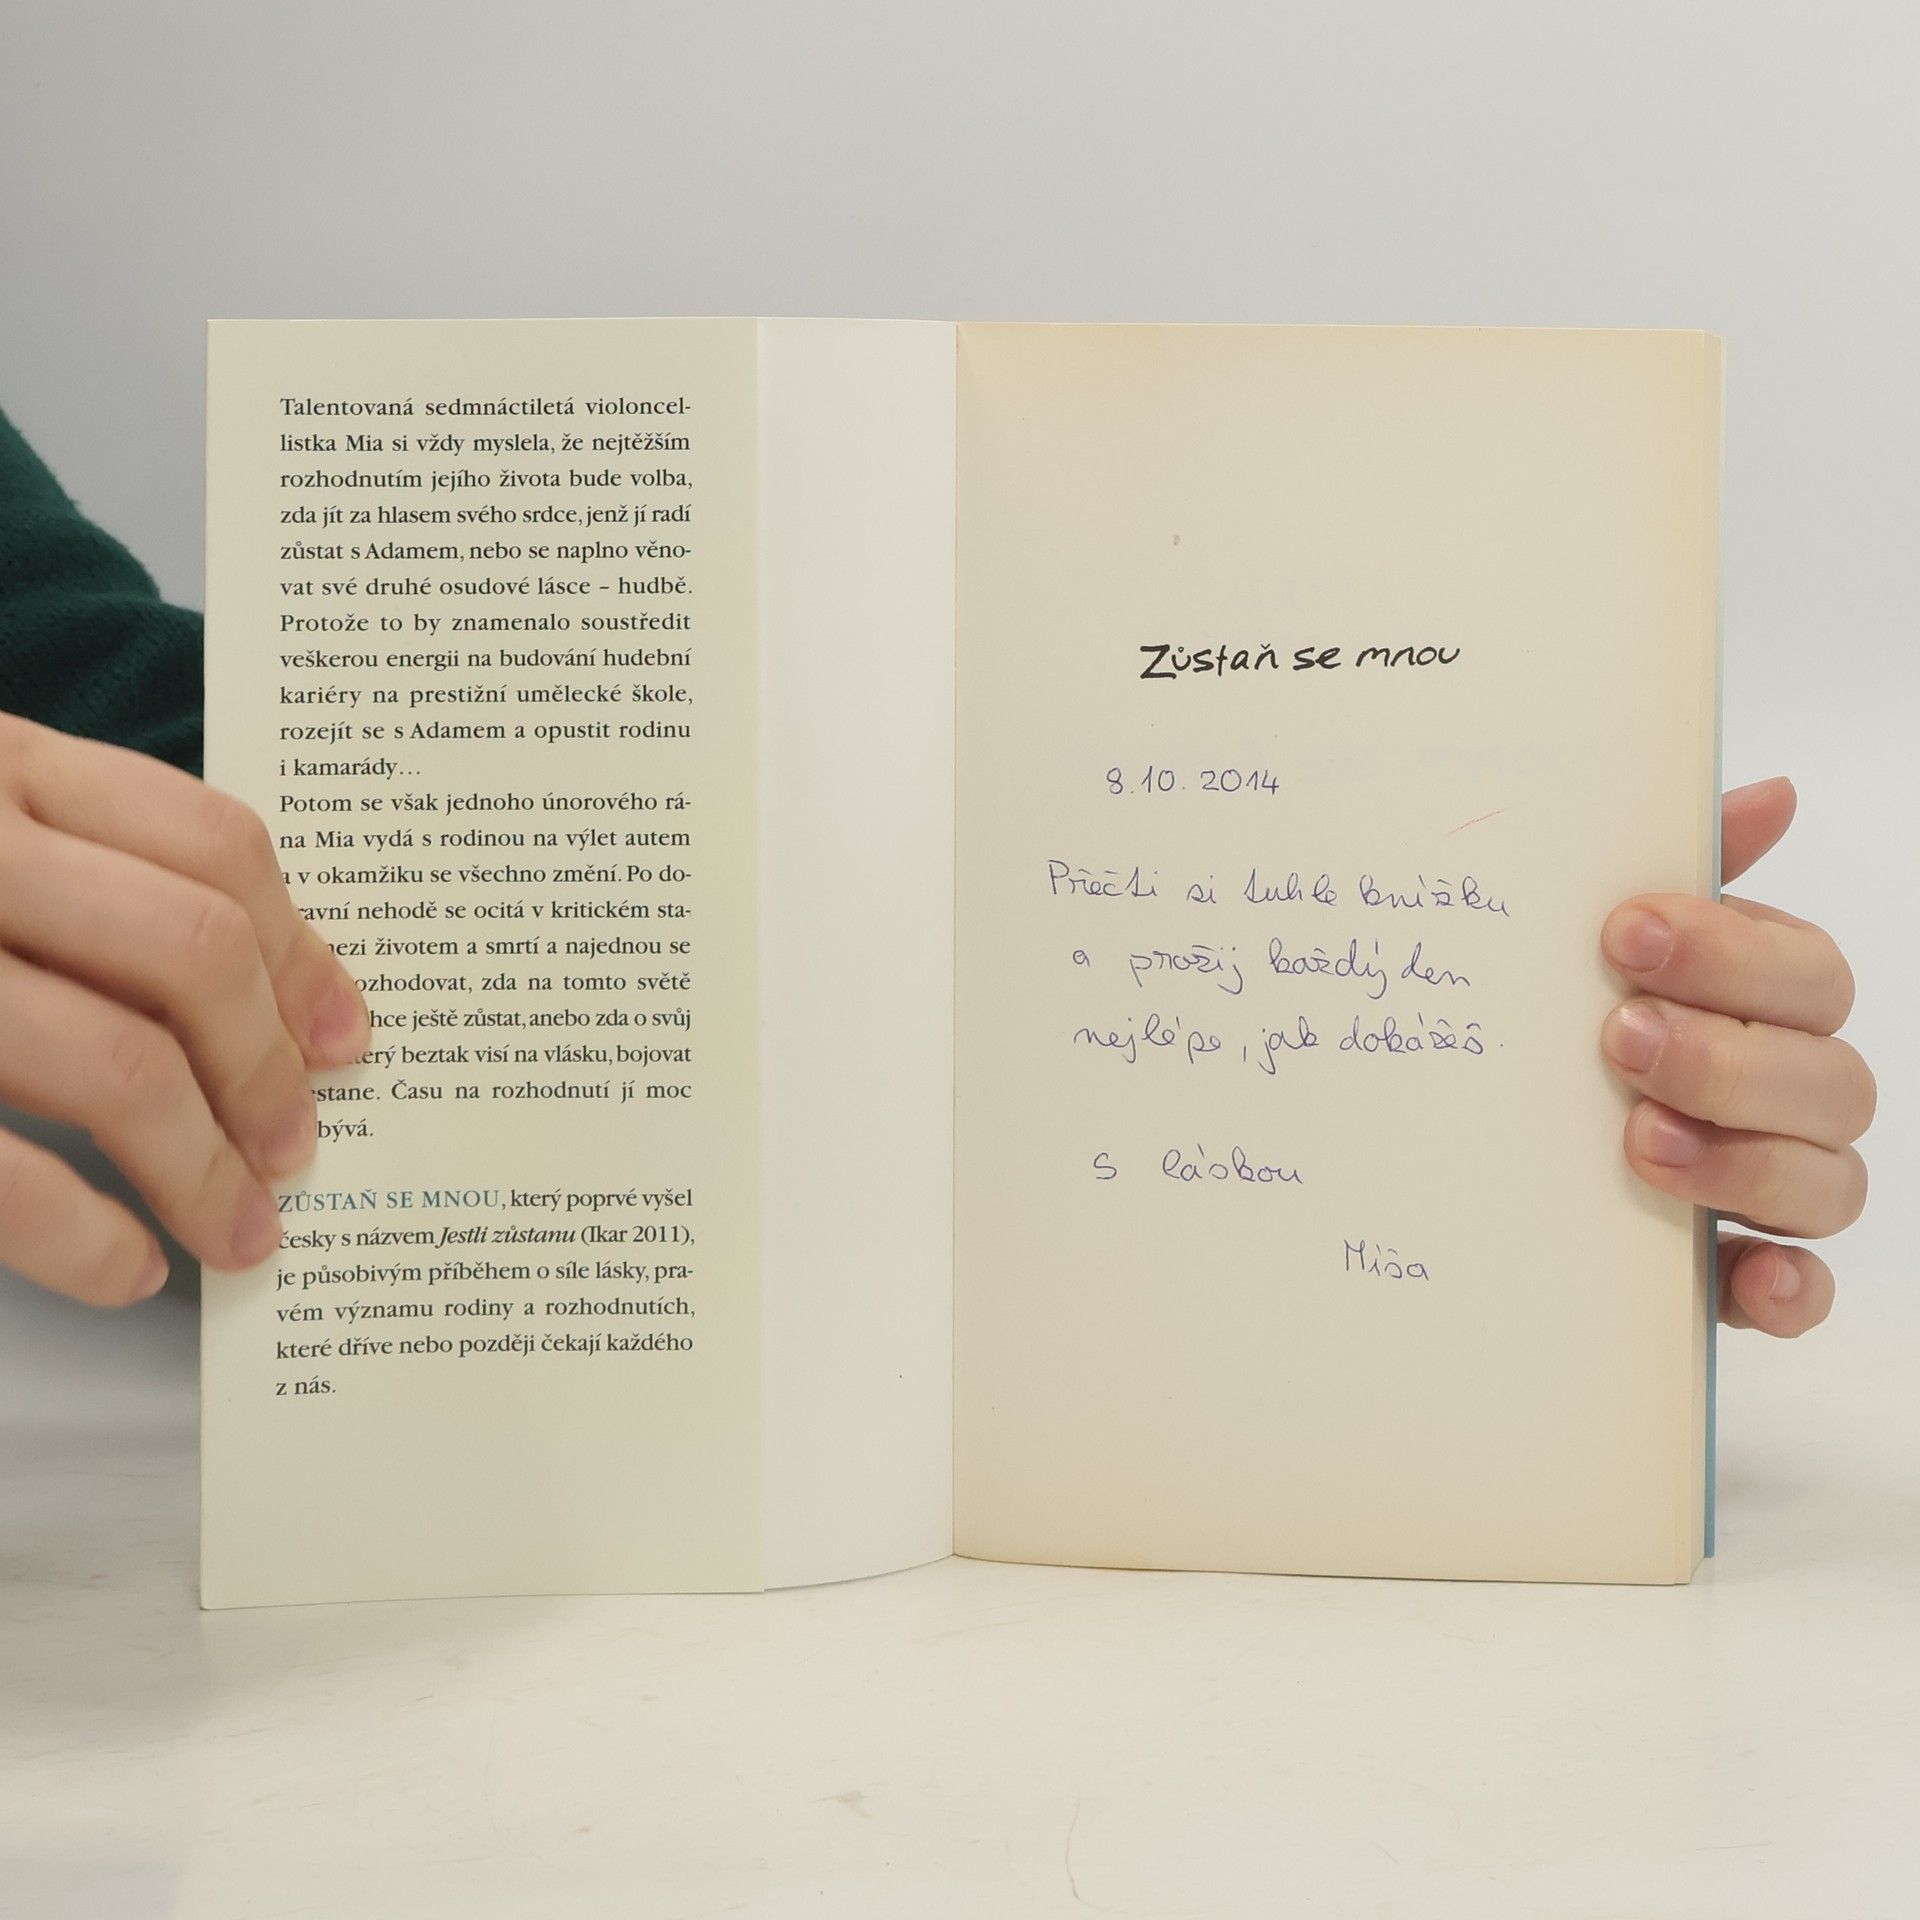 Talentovaná sedmnáctiletá violoncel-
listka Mia si vždy myslela, že nejtěžším
rozhodnutím jejího života bude volba,
zda jít za hlasem svého srdce, jenž jí radí
zůstat s Adamem, nebo se naplno věno-
vat své druhé osudové lásce – hudbě.
Protože to by znamenalo soustředit
veškerou energii na budování hudební
kariéry na prestižní umělecké škole,
rozejít se s Adamem a opustit rodinu
i kamarády…
Potom se však jednoho únorového rá-
na Mia vydá s rodinou na výlet autem
a v okamžiku se všechno změní. Po do-
ravní nehodě se ocitá v kritickém sta-
mezi životem a smrtí a najednou se
ozhodovat, zda na tomto světě
hce ještě zůstat, anebo zda o svůj
terý beztak visí na vlásku, bojovat
estane. Času na rozhodnutí jí moc
bývá.
ZŮSTAŇ SE MNOU, který poprvé vyšel
česky s názvem Jestli zůstanu (Ikar 2011),
je působivým příběhem o síle lásky, pra-
vém významu rodiny a rozhodnutích,
které dříve nebo později čekají každého
z nás.
Zůstaň se mnou
8.10. 2014
Přečti si tuhle knížku
a prožij každý den
nejlépe, jak dokážeš.
S láskou
Míša